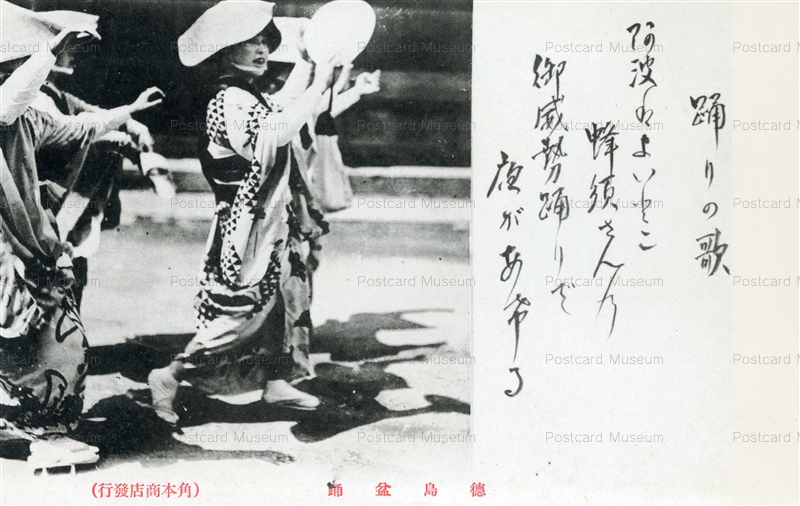 踊りの歌
阿波のよいとこ
蜂須さんの
御威勢踊りで
夜があける
德島盆踊
(角本商店發行)
Postcard Museum